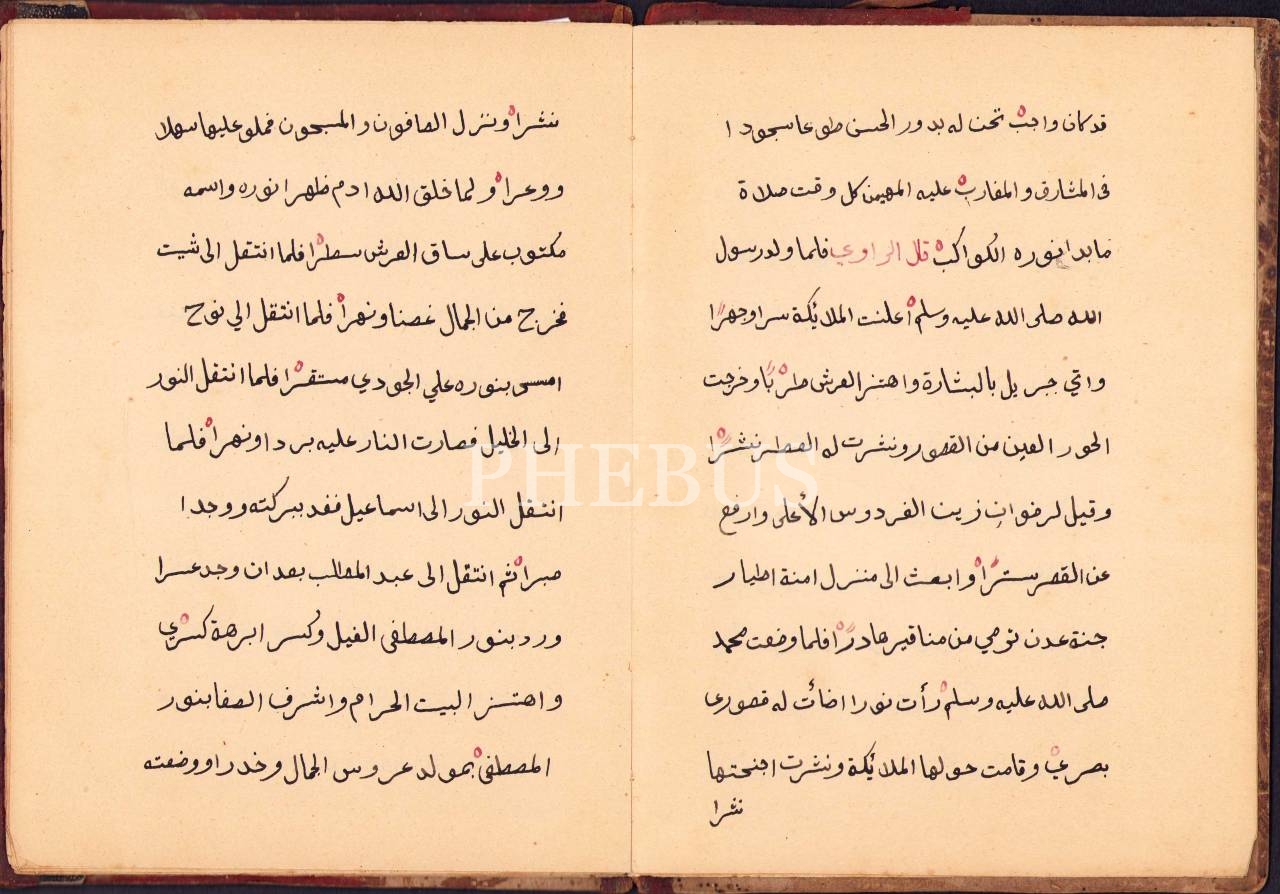 قد كان واجب تحن له بدور الحسن طوعا سجودا
فى المشارق والمغارب عليه المهيمن كل وقت صلاة
ما بدا نوره الكواكب قال الراوي فلما ولد رسول
الله صلى الله عليه وسلم أعلنت الملائكة سرا وجهرًا
واتي جبريل بالبشارة واهتز العرش طربًا وخرجت
الحور العين من القصور ونشرت له العطر نشرًا
وقيل لرضوان زين الفردوس الأعلى وارفع
عن القصر سترًا وابعث الى منزل امنة اطيار
جنة عدن ترمي من مناقير هادرًا فلما وضعت محمد
صلى الله عليه وسلم رأت نورا اضائت له قصورى
بصري وقامت حولها الملائكة ونشرت اجنحتها
نشرا
نشرا ونزل الصافون والمسبحون فملو عليها سهلا
ووعرا ولما خلق الله ادم ظهرا نوره واسمه
مكتوب على ساق العرش سطرا فلما انتقل الى شيت
فخرج من الجمال غصنا ونهرا فلما انتقل الي نوح
امسى بنوره علي الجودي مستقرا فلما انتقل النور
الى الخليل فصارت النار عليه بردا ونهرا فلما
انتقل النور الى اسماعيل ففد ببركته ووجدا
صبرا ثم انتقل الى عبد المطالب بعد ان وجد عسرا
ورد بنور المصطفى الفيل وكسر ابرهة كسري
واهتز البيت الحرام واشرف الصفا بنور
المصطفى بمولد عروس الجمال وخدرا ووضعته
PHEBUS